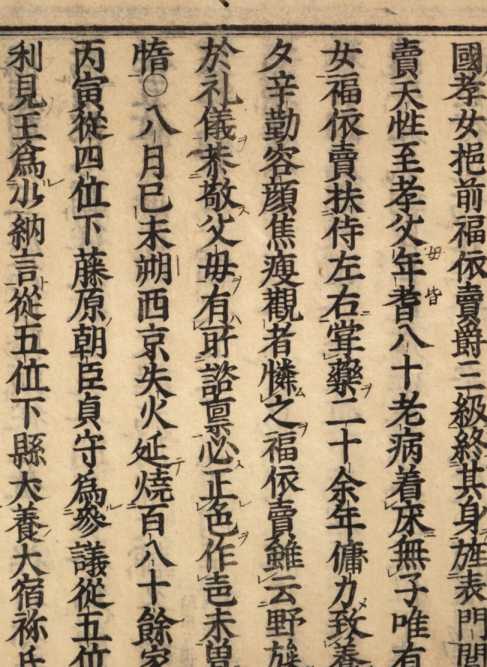 國孝女挹前福依賣爵二級終其身旌表門閭
賣天性至孝父年耆八十老病着床無子唯有
女福依賣扶侍左右甞藥二十余年傭力致養
夕辛勤容顔焦瘦觀者憐之福依賣雖云野
於礼儀恭敬父毋有所諮禀必正色作色未曽
惰○八月已未朔西京失火延焼百八十餘家
丙寅從四位下藤原朝臣貞守爲參議從五位
利見王爲少納言從五位下縣犬養大宿祢氏